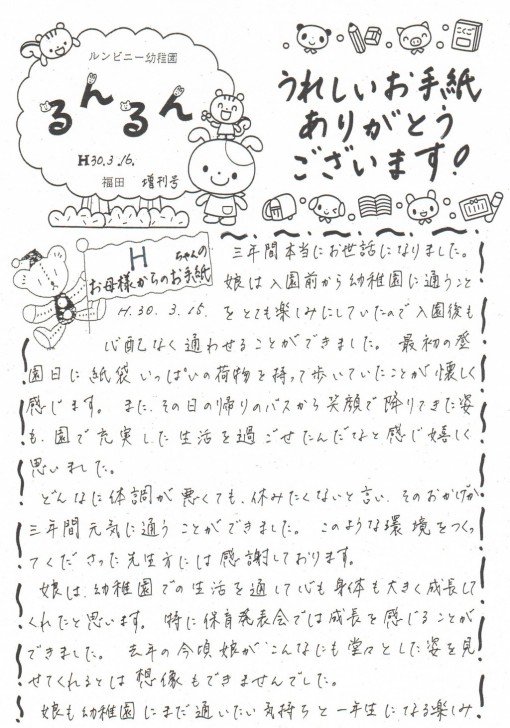 ルンビニー幼稚園
るんるん
H30.3.16.
福田 増刊号
うれしいお手紙
ありがとう
ございます!
こくご
H ちゃんの
お母様からのお手紙
H.30.3.15.
三年間本当にお世話になりました。
娘は入園前から幼稚園に通うこと
をとても楽しみにしていたので入園後も
心配なく通わせることができました。 最初の登
園日に紙袋いっぱいの荷物を持って歩いていたことが懐しく
感じます。また、その日の帰りのバスから笑顔で降りてきた姿
も、園で充実した生活を過ごせたんだなと感じ嬉しく
思いました。
どんなに体調が悪くても、休みたくないと言い、そのおかげか
三年間元気に通うことができました。 このような環境をつくっ
てくださった先生方には感謝しております。
娘は、幼稚園での生活を通して心も身体も大きく成長して
くれたと思います。特に保育発表会では成長を感じることが
できました。 去年の今頃娘が、こんなにも堂々とした姿を見
せてくれるとは想像もできませんでした。
娘も幼稚園にまだ通いたい気持ちと一年生になる楽しみ